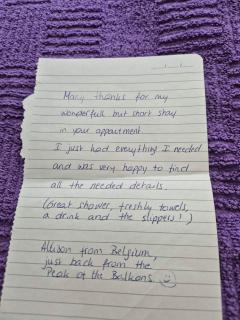 Many thanks for my
wonderfull but short stay
in your appartment.
I just had everything I needed
and was very happy to find
all the needed details.
(Great shower, freshly towels,
a drink and the slippers!)
Allison from Belgium,
just back from the
Peak of the Balkans